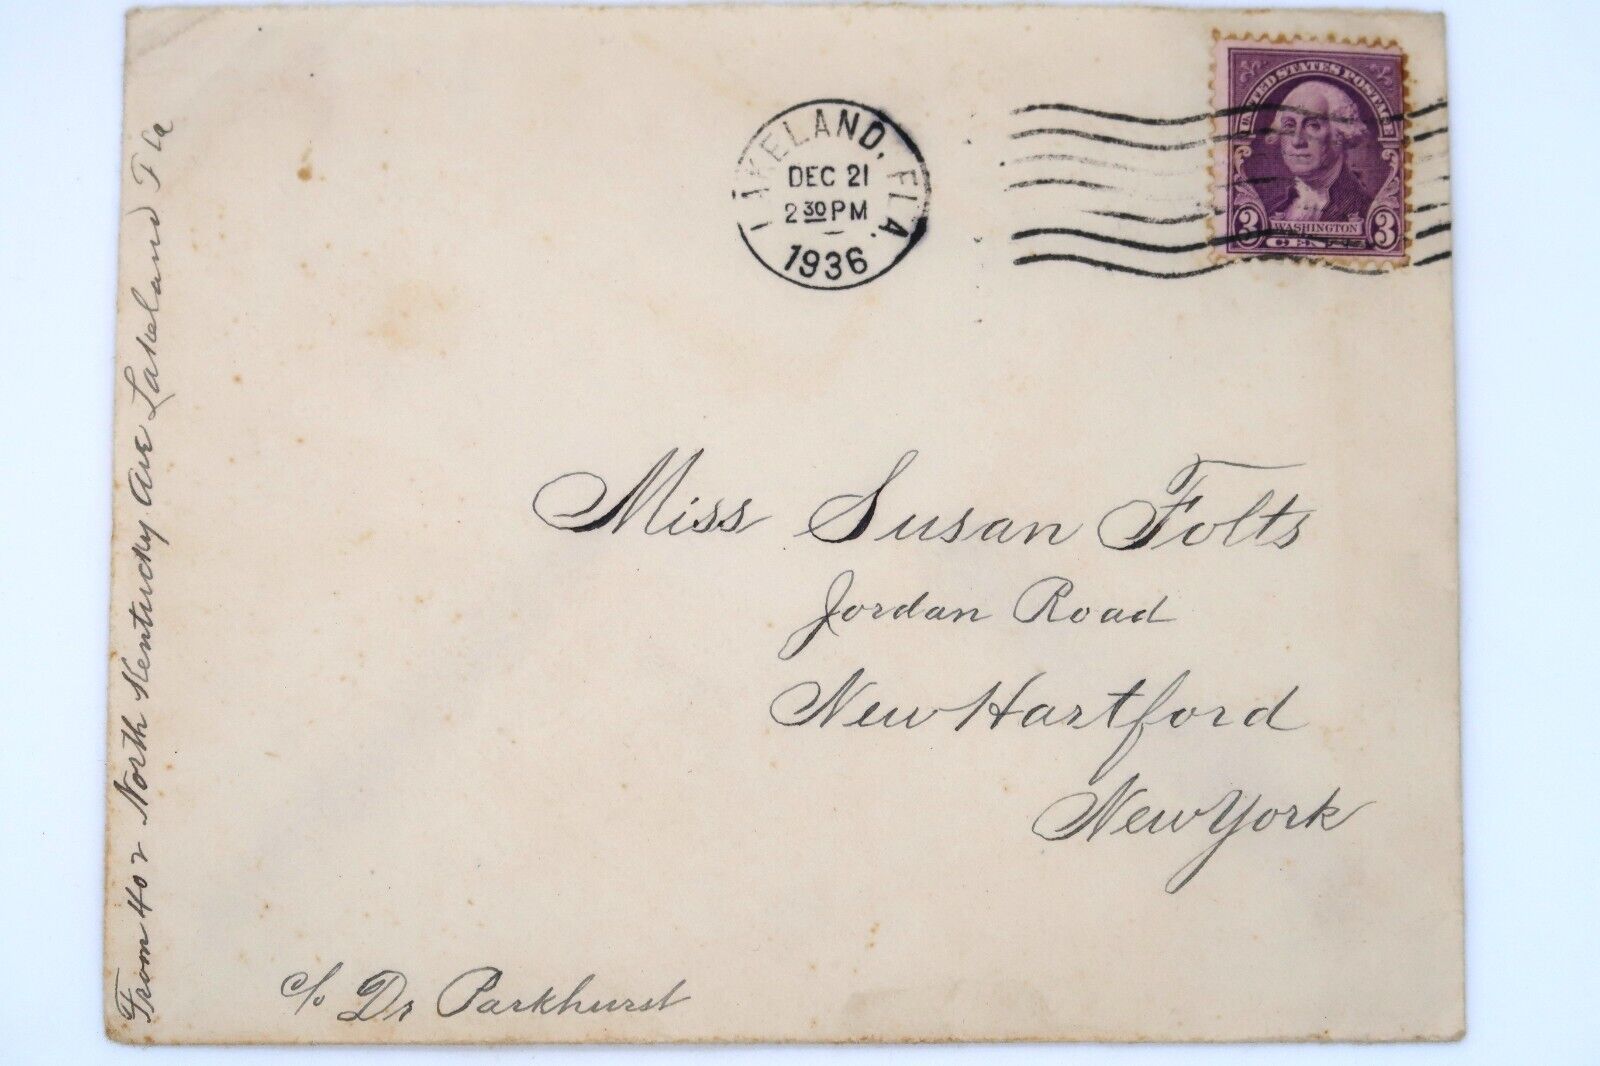 UNITED STATES POSTAGE
3 WASHINGTON 3
CENTS
LAKELAND, FLA.
DEC 21
2 30 PM
1936
Miss Susan Folts
Jordan Road
New Hartford
New York
c/o Dr Parkhurst
From 402 North Kentucky Ave Lakeland Fla